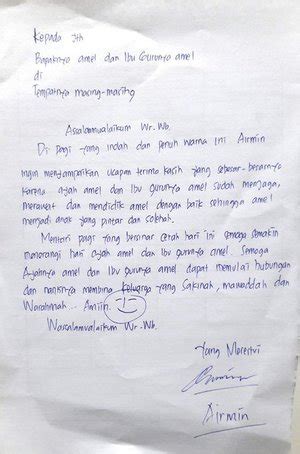 Kepada Yth
Bapaknya amel dan Ibu Gurunya amel
di
Tempatnya masing-masing
Assalamualaikum Wr. Wb.
Di pagi yang indah dan penuh warna ini Airmin
ingin menyampaikan ucapan terima kasih yang sebesar-besarnya
karena ayah amel dan Ibu Gurunya amel sudah menjaga,
merawat dan mendidik amel dengan baik sehingga amel
menjadi anak yang pintar dan solehah.
Mentari pagi yang bersinar cerah hari ini semoga semakin
menerangi hati ayah amel dan Ibu gurunya amel. Semoga
Ayahnya amel dan Ibu gurunya amel dapat memulai hubungan
dan nantinya membina keluarga yang Sakinah, mawaddah dan
Warahmah... Amiin.
Wassalamualaikum Wr. Wb.
Yang Merestui
Airmin